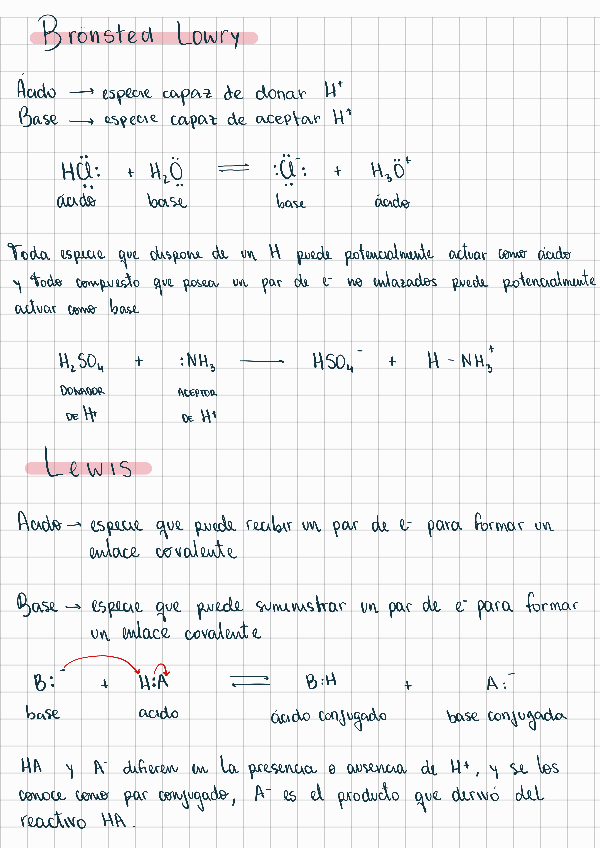 Bronsted Lowry
Ácido → especie capaz de donar H⁺
Base → especie capaz de aceptar H⁺
HCl: + H₂O ⇌ :Cl:⁻ + H₃O⁺
ácido base base ácido
Toda especie que dispone de un H puede potencialmente actuar como ácido
y todo compuesto que posea un par de e⁻ no enlazados puede potencialmente
actuar como base
H₂SO₄ + :NH₃ — HSO₄⁻ + H - NH₃⁺
DONADOR ACEPTOR
DE H⁺ DE H⁺
Lewis
Acido → especie que puede recibir un par de e⁻ para formar un
enlace covalente
Base → especie que puede suministrar un par de e⁻ para formar
un enlace covalente
B:⁻ + H:A ⇌ B:H + A:⁻
base acido ácido conjugado base conjugada
HA y A⁻ difieren en la presencia o ausencia de H⁺, y se los
conoce como par conjugado, A⁻ es el producto que derivó del
reactivo HA.